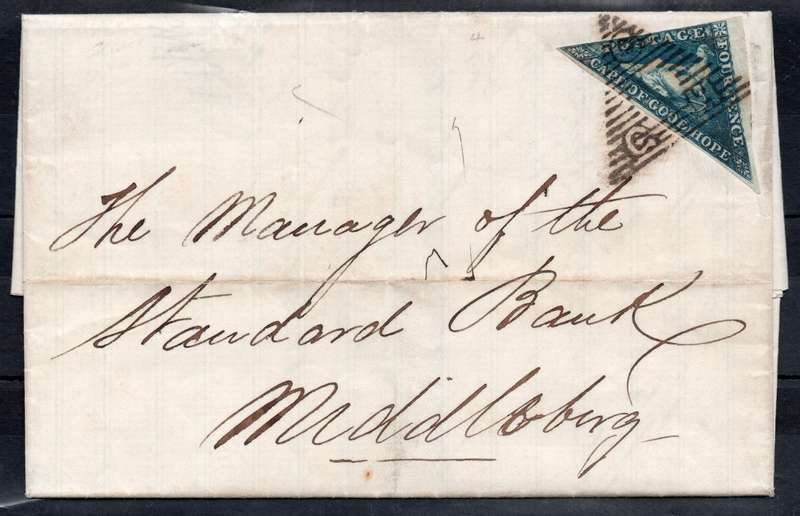 POSTAGE
FOUR PENCE
CAPE OF GOOD HOPE
The Manager of the
Standard Bank
Middlbburg